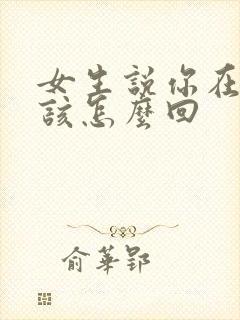 女生説你在
該怎麼回
俞華郢